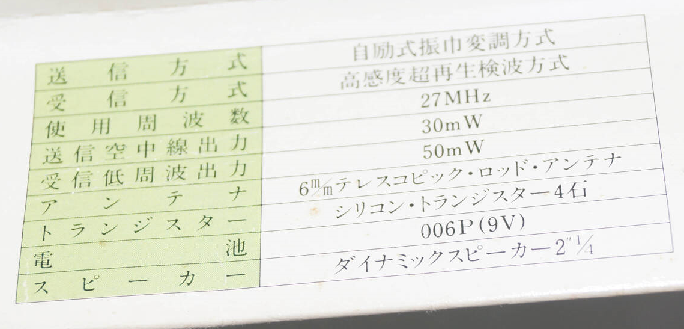 送信方式 自励式振巾変調方式
受信方式 高感度超再生検波方式
使用周波数 27MHz
送信空中線出力 30mW
受信低周波出力 50mW
アンテナ 6m/mテレスコピック・ロッド・アンテナ
トランジスター シリコン・トランジスター4石
電池 006P(9V)
スピーカー ダイナミックスピーカー2"1/4